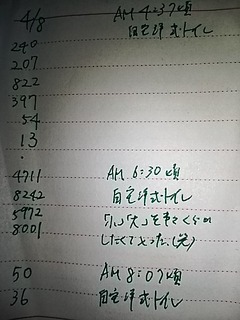 4/8
AM 4:37頃
自宅洋式トイレ
240
207
822
397
54
13
.
4711
AM 6:30頃
8242
自宅洋式トイレ
5972
8001
したくて
50
AM 8:07頃
36
自宅洋式トイレ